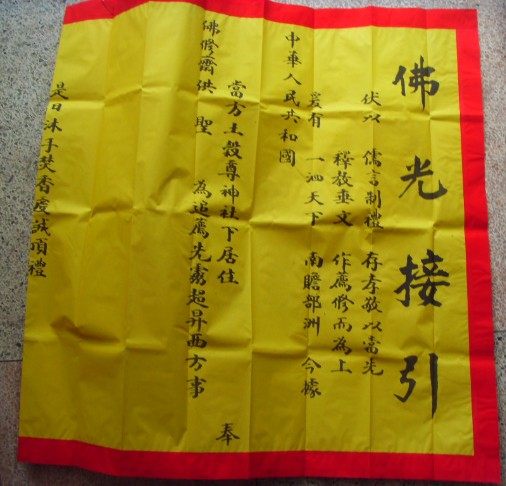 佛光接引
伏以 儒言制禮 存孝敬以當先
釋教垂文 作薦修而為上
爰有 一泗天下 南瞻部洲 今據
中華人民共和國
當方土穀尊神社下居住 奉
佛修齋供聖 為追薦先靈超昇西方事
是日沐手焚香虔誠頂禮